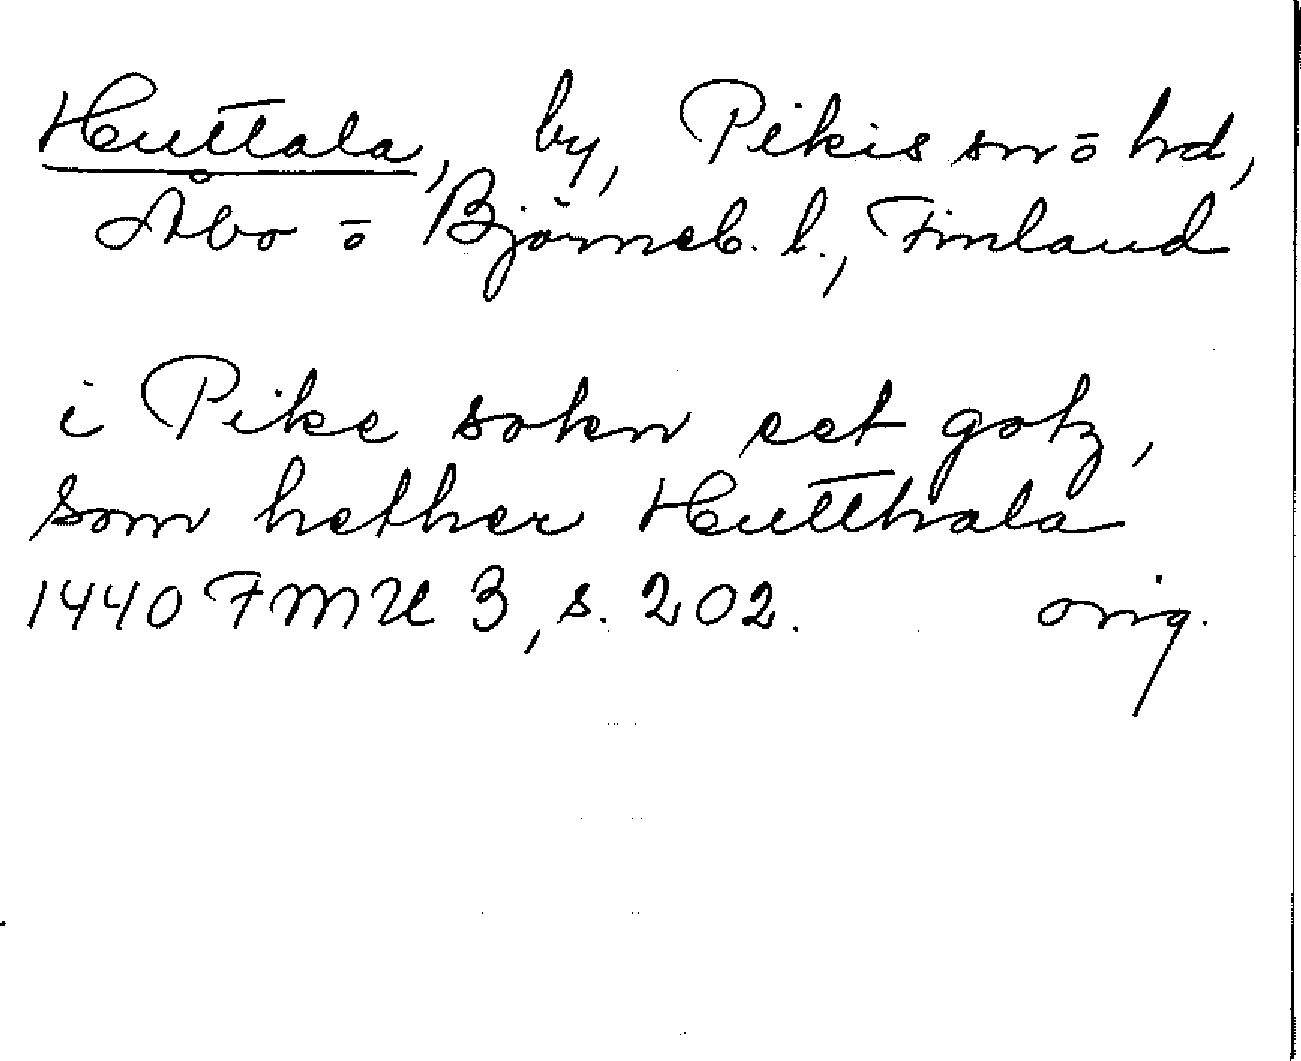 Huttala, by, Pikis sn o hd,
Åbo o Björneb. l., Finland
i Pike sokn eet gotz,
som hether Hutthala
1440 FMU 3, s. 202. orig.